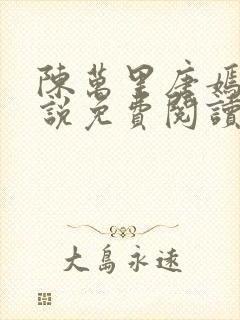 陳萬里唐嫣
說免費閱讀
大島永遠